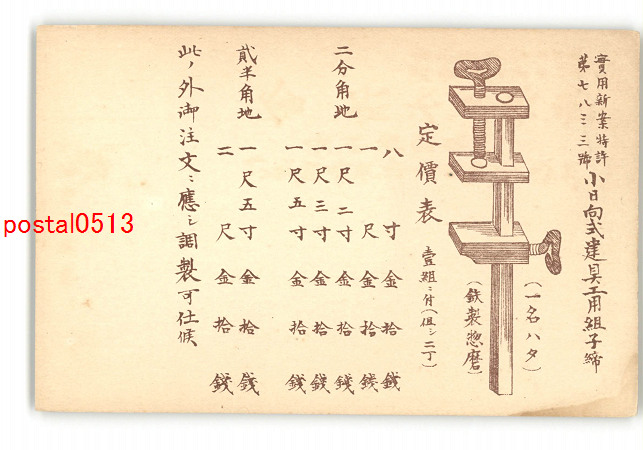 實用新案特許
第七八三三號
小日向式建具工用組子締
(一名ハタ)
(鉄製惣磨)
定價表
壹組ニ付(但シ二丁)
二分角地
八寸金拾錢
一尺金拾錢
一尺二寸金拾錢
一尺三寸金拾錢
一尺五寸金拾錢
貳半角地
一尺五寸金拾錢
二尺金拾錢
此ノ外御注文ニ應シ調製可仕候
postal0513